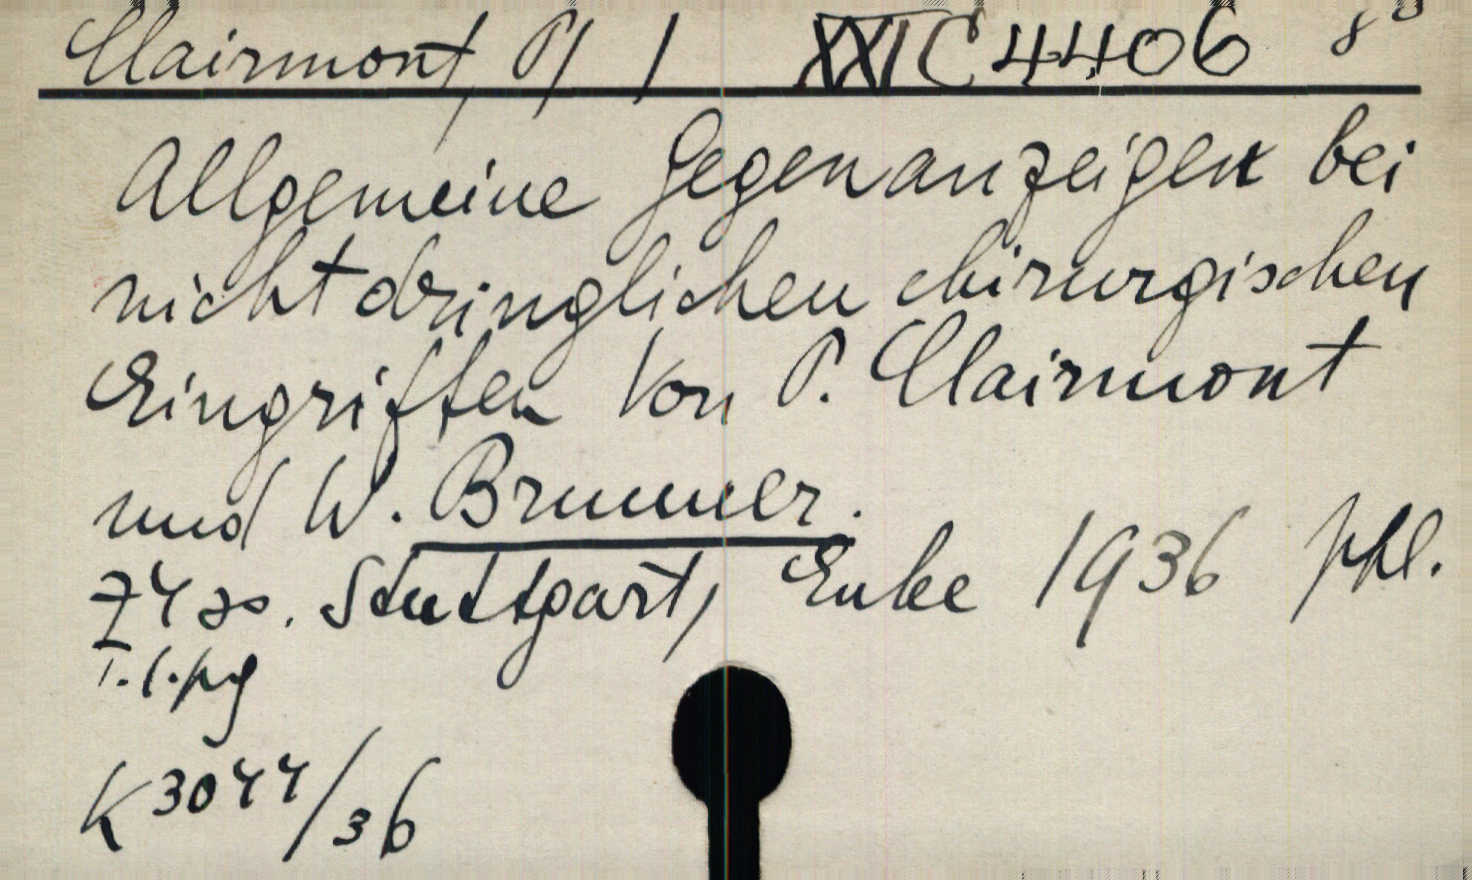 Clairmont, P/ 1 XXIC 4406 8°
Allgemeine Gegenanzeigen bei
nichtdringlichen chirurgischen
Eingriffen Von P. Clairmont
und W. Brunner.
74 Stuttgart, Enke 1936
K 3044/36